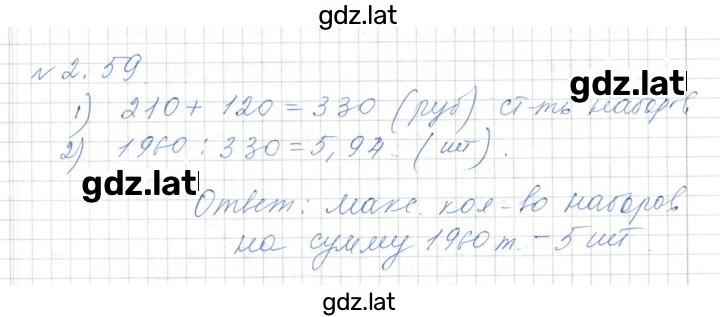 gdz.lat
№ 2. 59.
gdz.lat
1) 210 + 120 = 330 (руб) ст-ть наборов
2) 1960 : 330 = 5,94.. (шт).
gdz.lat
Ответ: макс. кол-во наборов
на сумму 1960 т. - 5 шт.
gdz.lat